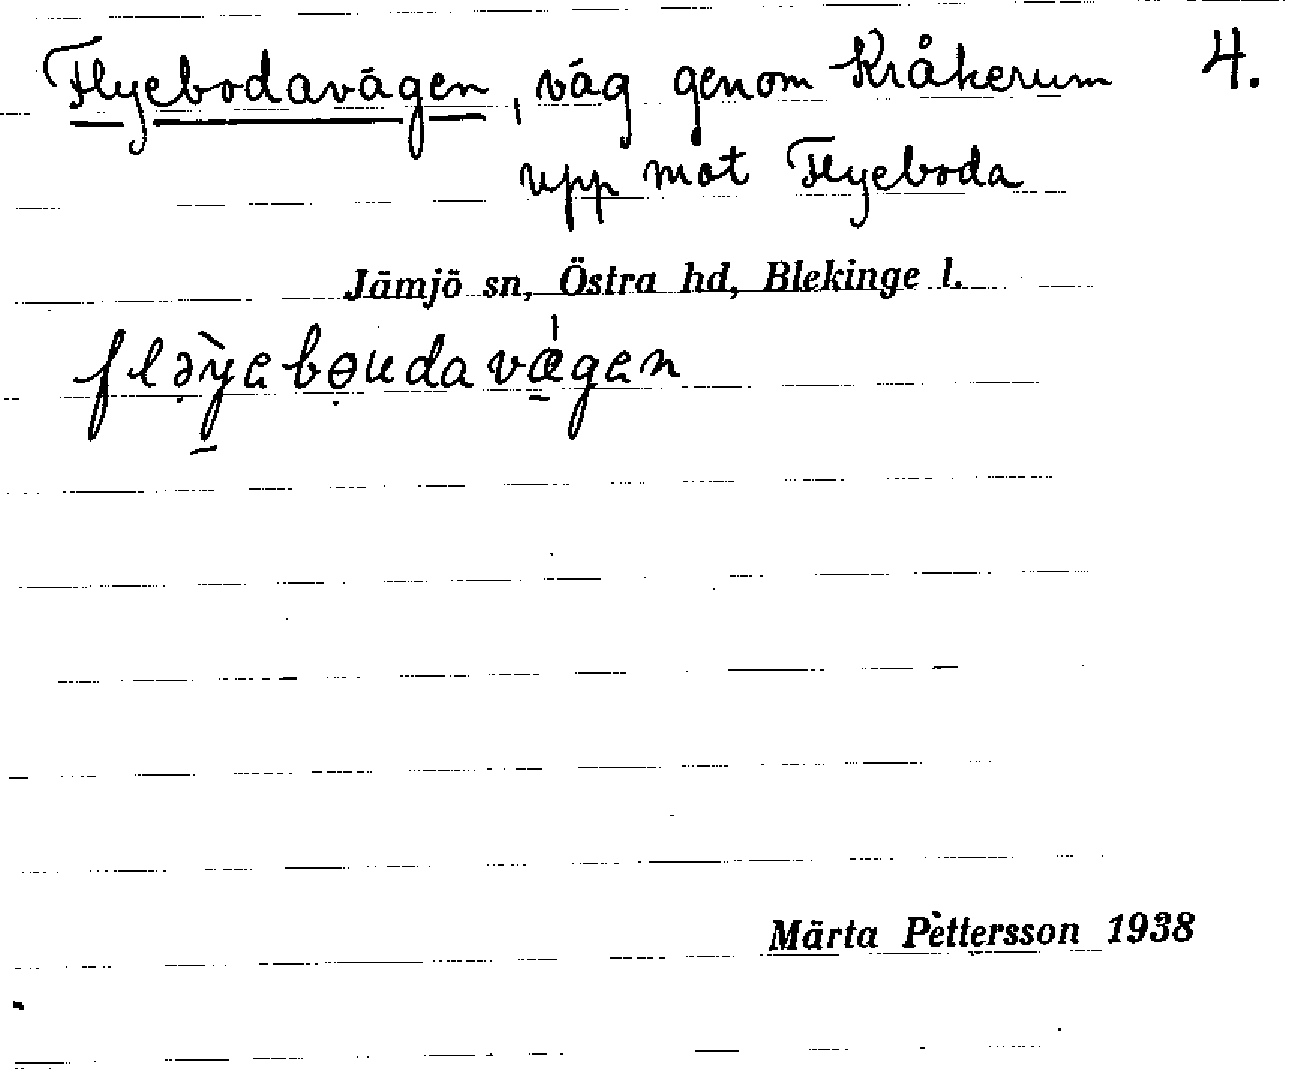 Flyebodavägen, väg genom Kråkerum 4.
upp mot Flyeboda
Jämjö sn, Östra hd, Blekinge l.
flə̣̀yebɵ̣udavǽgen
Märta Pettersson 1938